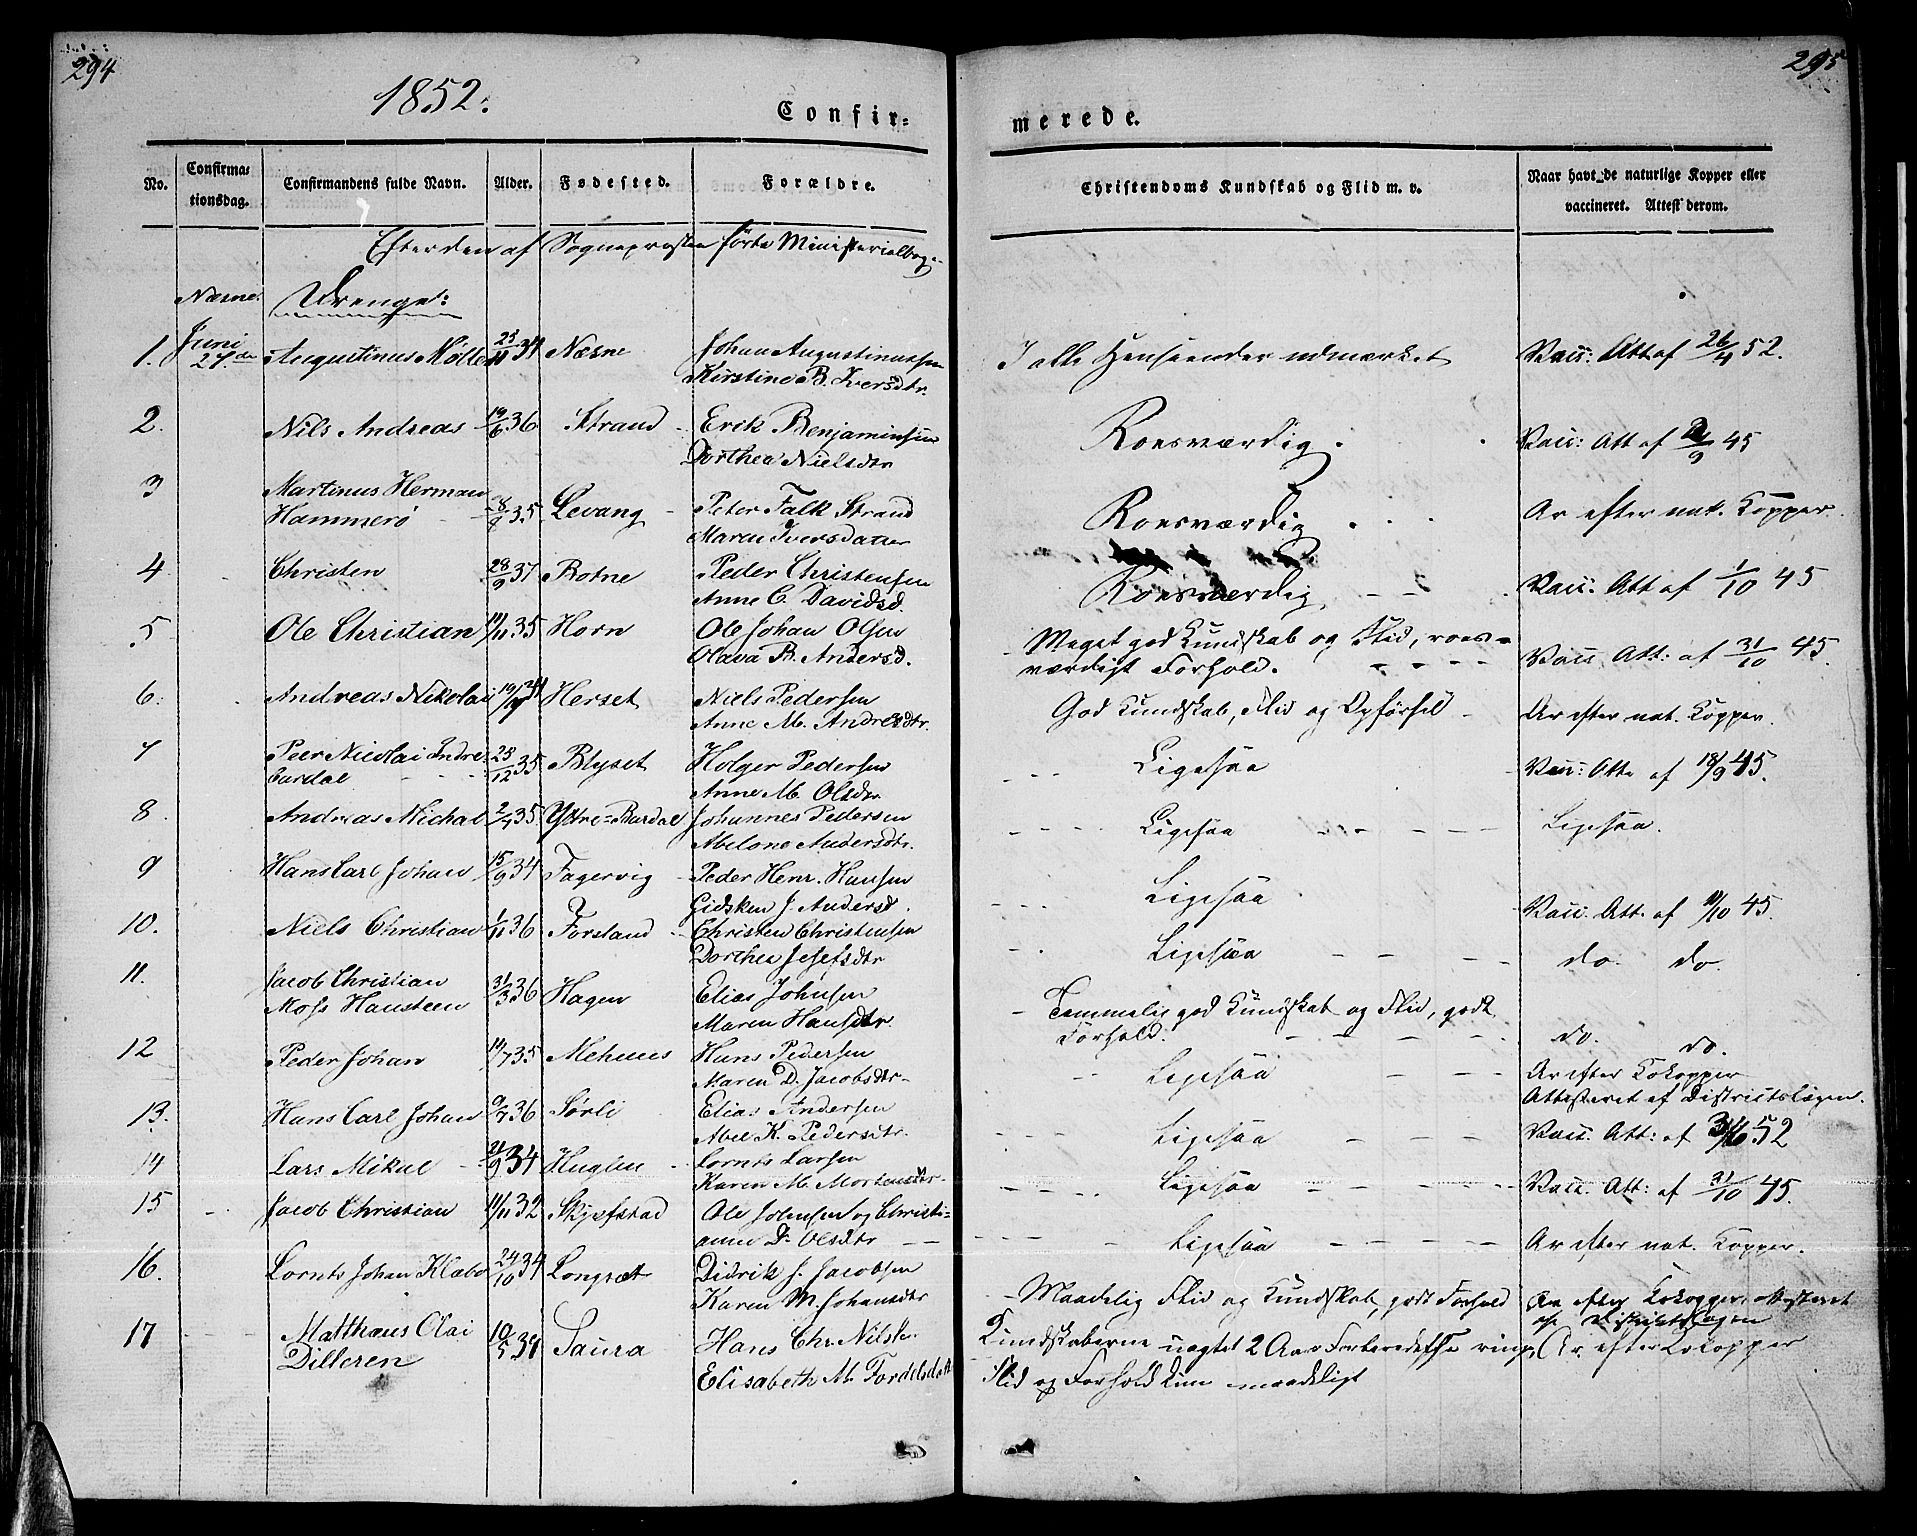 294
1852.
Confir=
No.
Confirma=
tionsdag.
Confirmandens fulde Navn.
Alder.
Fødested.
Forældre.
Efter den af Sognepræsten førte Ministerialbog.
Næsne.
Drenge:
1. Juni 27.de Augustinus Møller 34 Næsne Johan Augustinussen
Kirstine B. Iversdtr.
2. Nils Andreas 19/6 36 Strand Erik Benjaminsen
Dorthea Nielsdtr
3 Martinus Herman
Hammerø 35 Levang Peter Falk Strand
Maren Iversdatter
4 Christen 28/9 37 Botne Peder Christensen
Anne C. Davidsd.
5 Ole Christian 35 Horn Ole Johan Olsen
Olava B. Andersd.
6. Andreas Nikolai 34 Herset Niels Pedersen
Anne M. Andresdtr.
7 Peer Nicolai Indre
bardal 23/12 35 Blyset Holger Pedersen
Anne M. Olsdtr
8. Andreas Michal 2/4 35 Yttre=Bardal Johannes Pedersen
Abelone Andersdtr.
9 Hans Carl Johan 15/9 34 Fagervig Peder Henr. Hansen
Gidsken J. Andersd.
10. Niels Christian 1/11 36 Forsland Christen Christensen
Dorthea Josefsdtr
11. Jacob Christian
Moss Hansteen 31/3 36 Hagen Elias Johnsen
Maren Hansdtr.
12 Peder Johan 35 Mehuus Hans Pedersen
Maren D. Jacobsdtr
13. Hans Carl Johan 9/7 36 Sørli Elias Andersen
Abel K. Pedersdtr.
14 Lars Mikal 34 Huglen Lornts Larsen
Karen M. Mortensdtr
15 Jacob Christian 32 Skjefstad Ole Johnsen og Christi=
anne D. Olsdtr
16. Lornts Johan Klæbo 24/10 34 Longsæt Didrik J. Jacobsen
Karen M. Johansdtr
17 Matthæus Olai
Dilleren 10/5 34 Saura Hans Chr. Nils
Elisabeth M.
295
merede.
Christendoms Kundskab og Flid m. v.
Naar havt de naturlige Kopper eller
vaccineret. Attest derom.
I alle Henseender udmærket Vacc: Att af 26/4 52.
Roesværdig Vacc: Att af 45
Roesværdig Ar efter nat. Kopper.
Roesværdig Vacc: Att af 1/10 45
Meget god Kundskab og Flid, roes=
værdigt Forhold. Vacc. Att: af 31/10 45.
God Kundskab, Flid og Opførsel Ar efter nat. Kopper.
Ligesaa Vacc: Att. af 18/9 45.
Ligesaa Ligesaa.
Ligesaa Vacc. Att. af 45.
Ligesaa do. do.
Temmelig god Kundskab og Flid, godt
Forhold. do. do.
Ligesaa Ar efter Kokopper
Attesteret af Districtslægen.
Ligesaa Vacc. Att: af 52
Ligesaa Vacc. Att: af 31/10 45.
Ligesaa Ar efter nat. Kopper.
Maadelig Flid og Kundskab, godt Forhold Ar efter Kokopper, attesteret
af Districtslægen
Kundskaberne uagtet 2 Aars Forberedelse ringe, Ar efter Kokopper
Flid og Forhold kun maadeligt